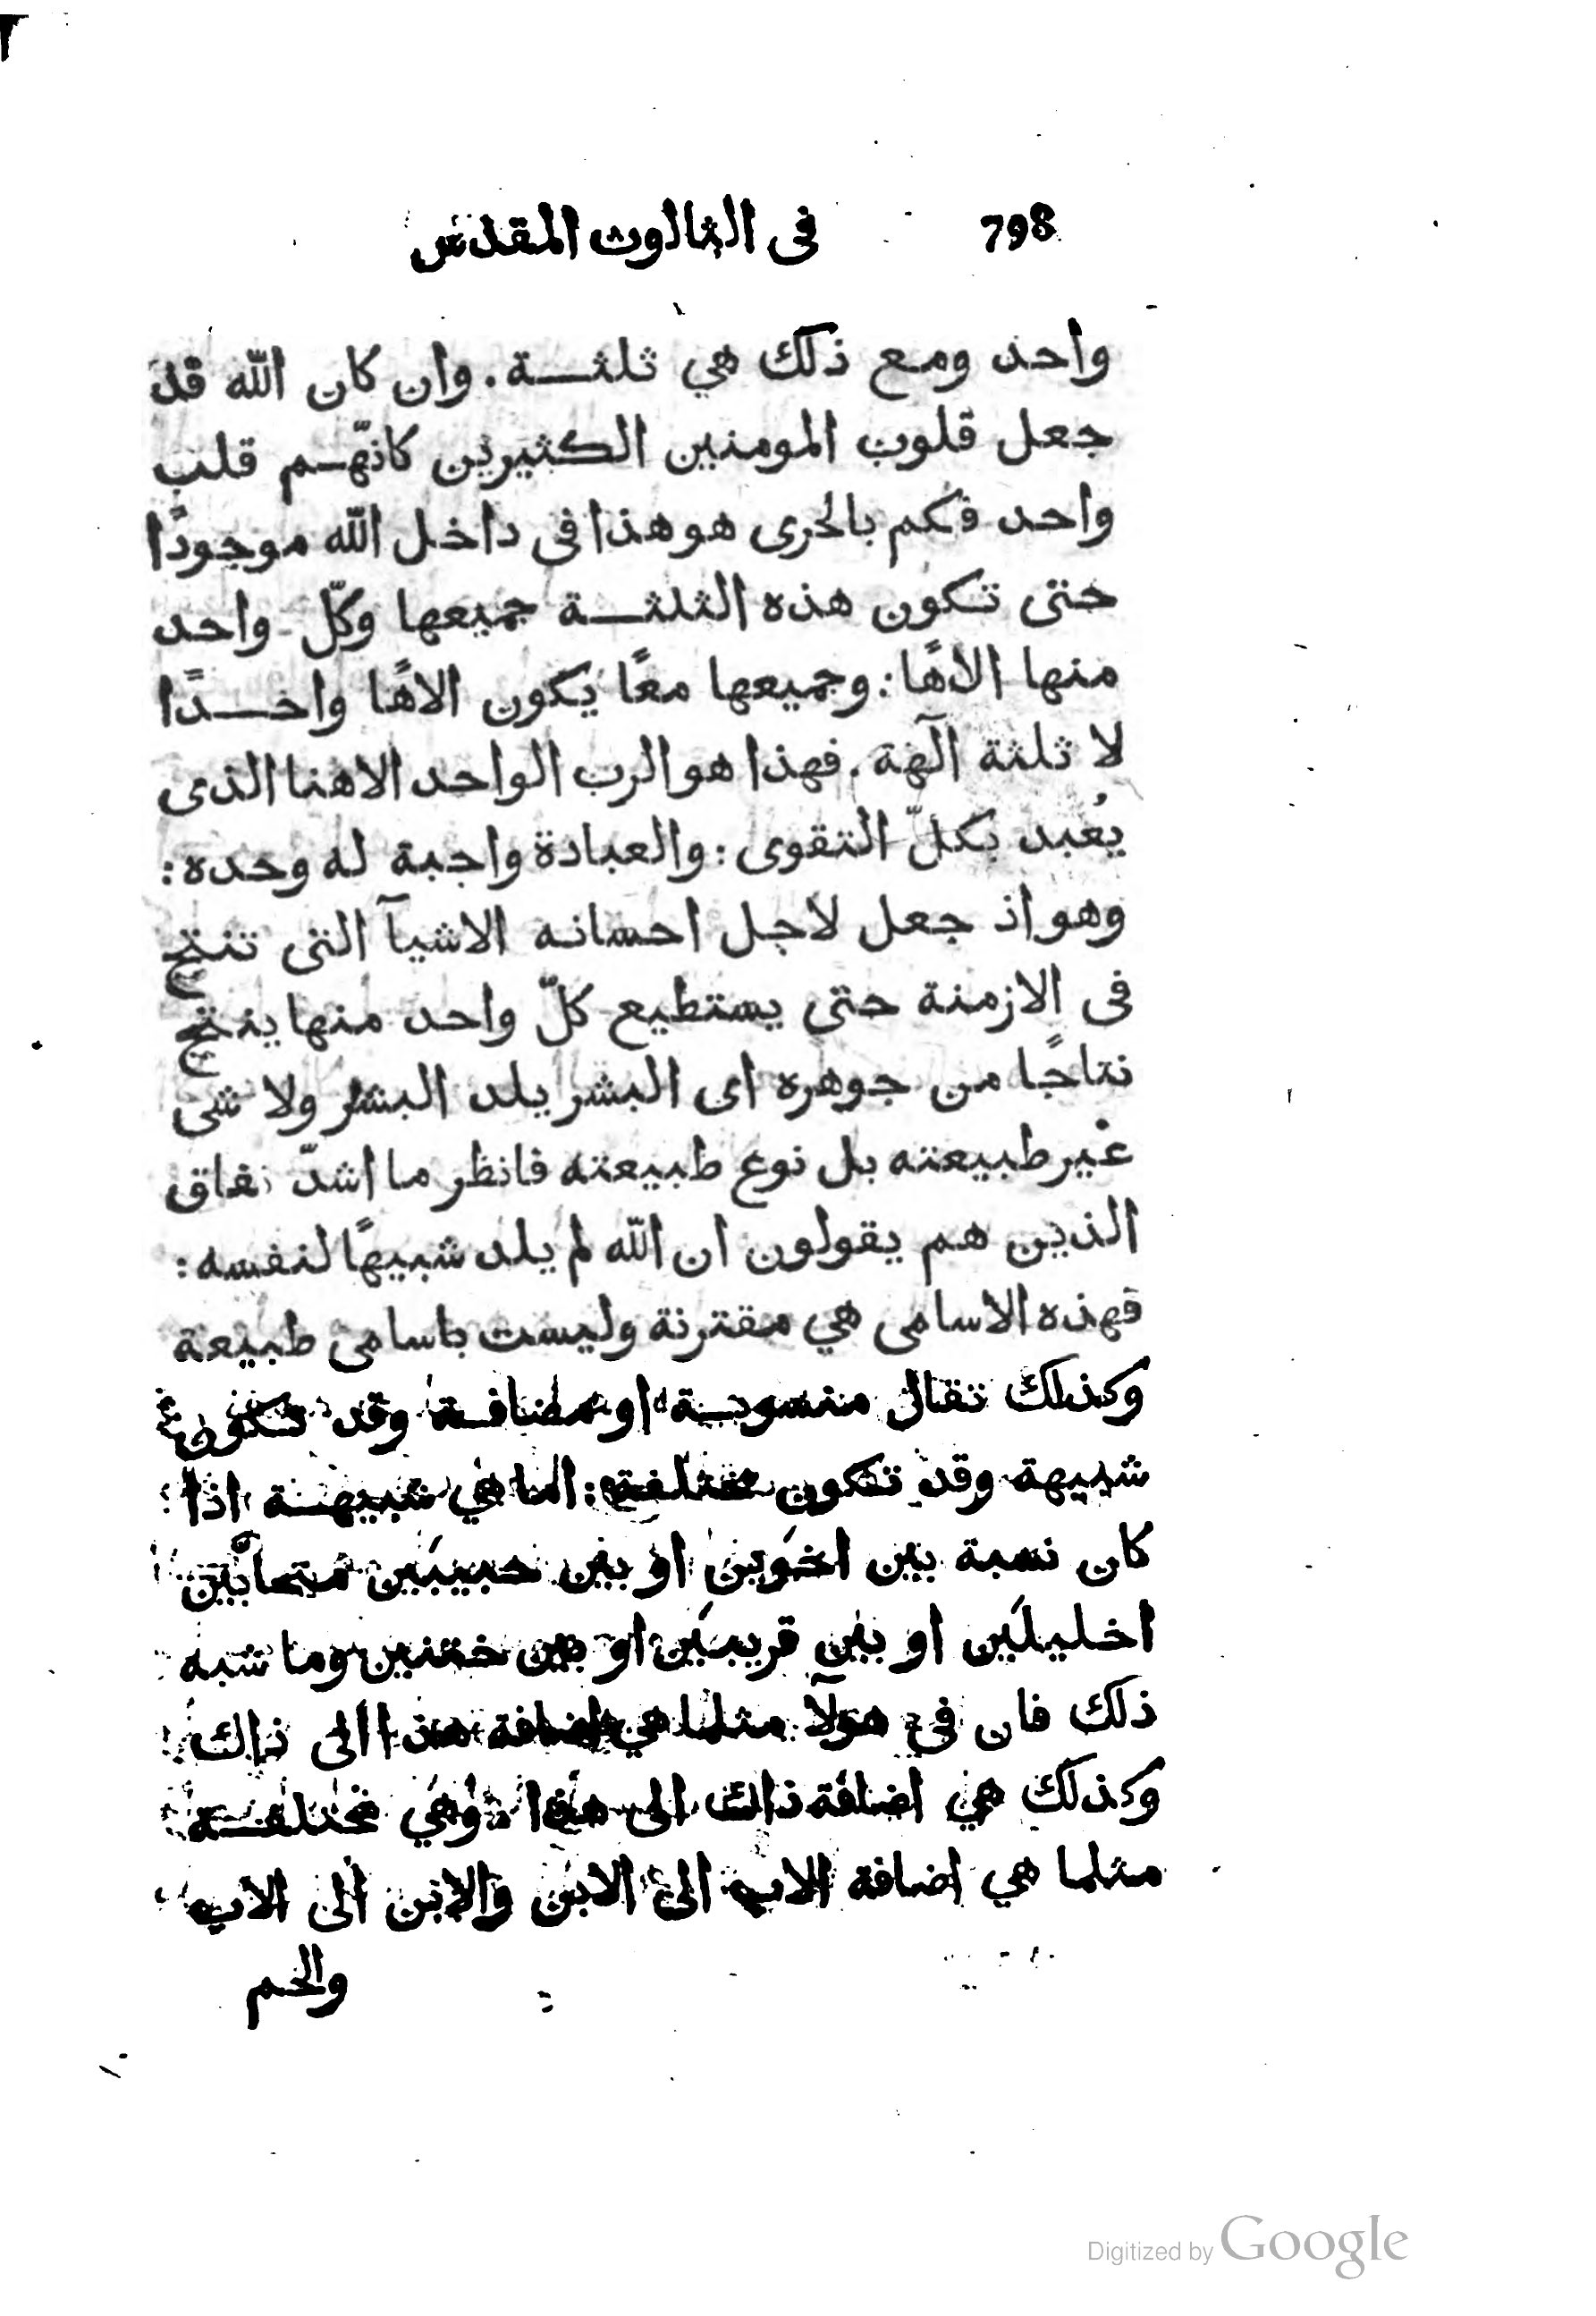 798 فى الثالوث المقدس
واحد ومع ذلك هي ثلثة. وان كان الله قد
جعل قلوب المومنين الكثيرين كانّهم قلب
واحد فكم بالحرى هو هذا فى داخل الله موجودًا
حتى تكون هذه الثلثة جميعها وكلّ واحد
منها الاهًا: وجميعها معًا يكون الاهًا واحدًا
لا ثلثة آلهة. فهذا هو الرب الواحد الاهنا الذى
يُعبد بكلّ التقوى: والعبادة واجبة له وحده:
وهو اذ جعل لاجل احسانه الاشيآ التى تنتج
فى الازمنة حتى يستطيع كلّ واحد منها ينتج
نتاجًا من جوهره اى البشر يلد البشر ولا شى
غير طبيعته بل نوع طبيعته فانظر ما اشدّ نفاق
الذين هم يقولون ان الله لم يلد شبيهًا لنفسه:
فهذه الاسامى هي مقترنة وليست باسامى طبيعة
وكذلك تقال منسوبة او مضافة وقد تكون
شبيهة وقد تكون مختلفة: اما هي شبيهة اذا
كان نسبة بين اخوَين او بين حبيبَين متحابّين
اخليلَين او بين قريبَين او بين ختنين وما شبه
ذلك فان فى هولآ مثلما هي اضافة هذا الى ذاك
وكذلك هي اضافة ذاك الى هذا: وهي مختلفة
مثلما هي اضافة الاب الى الابن والابن الى الاب
والخم
Digitized by Google